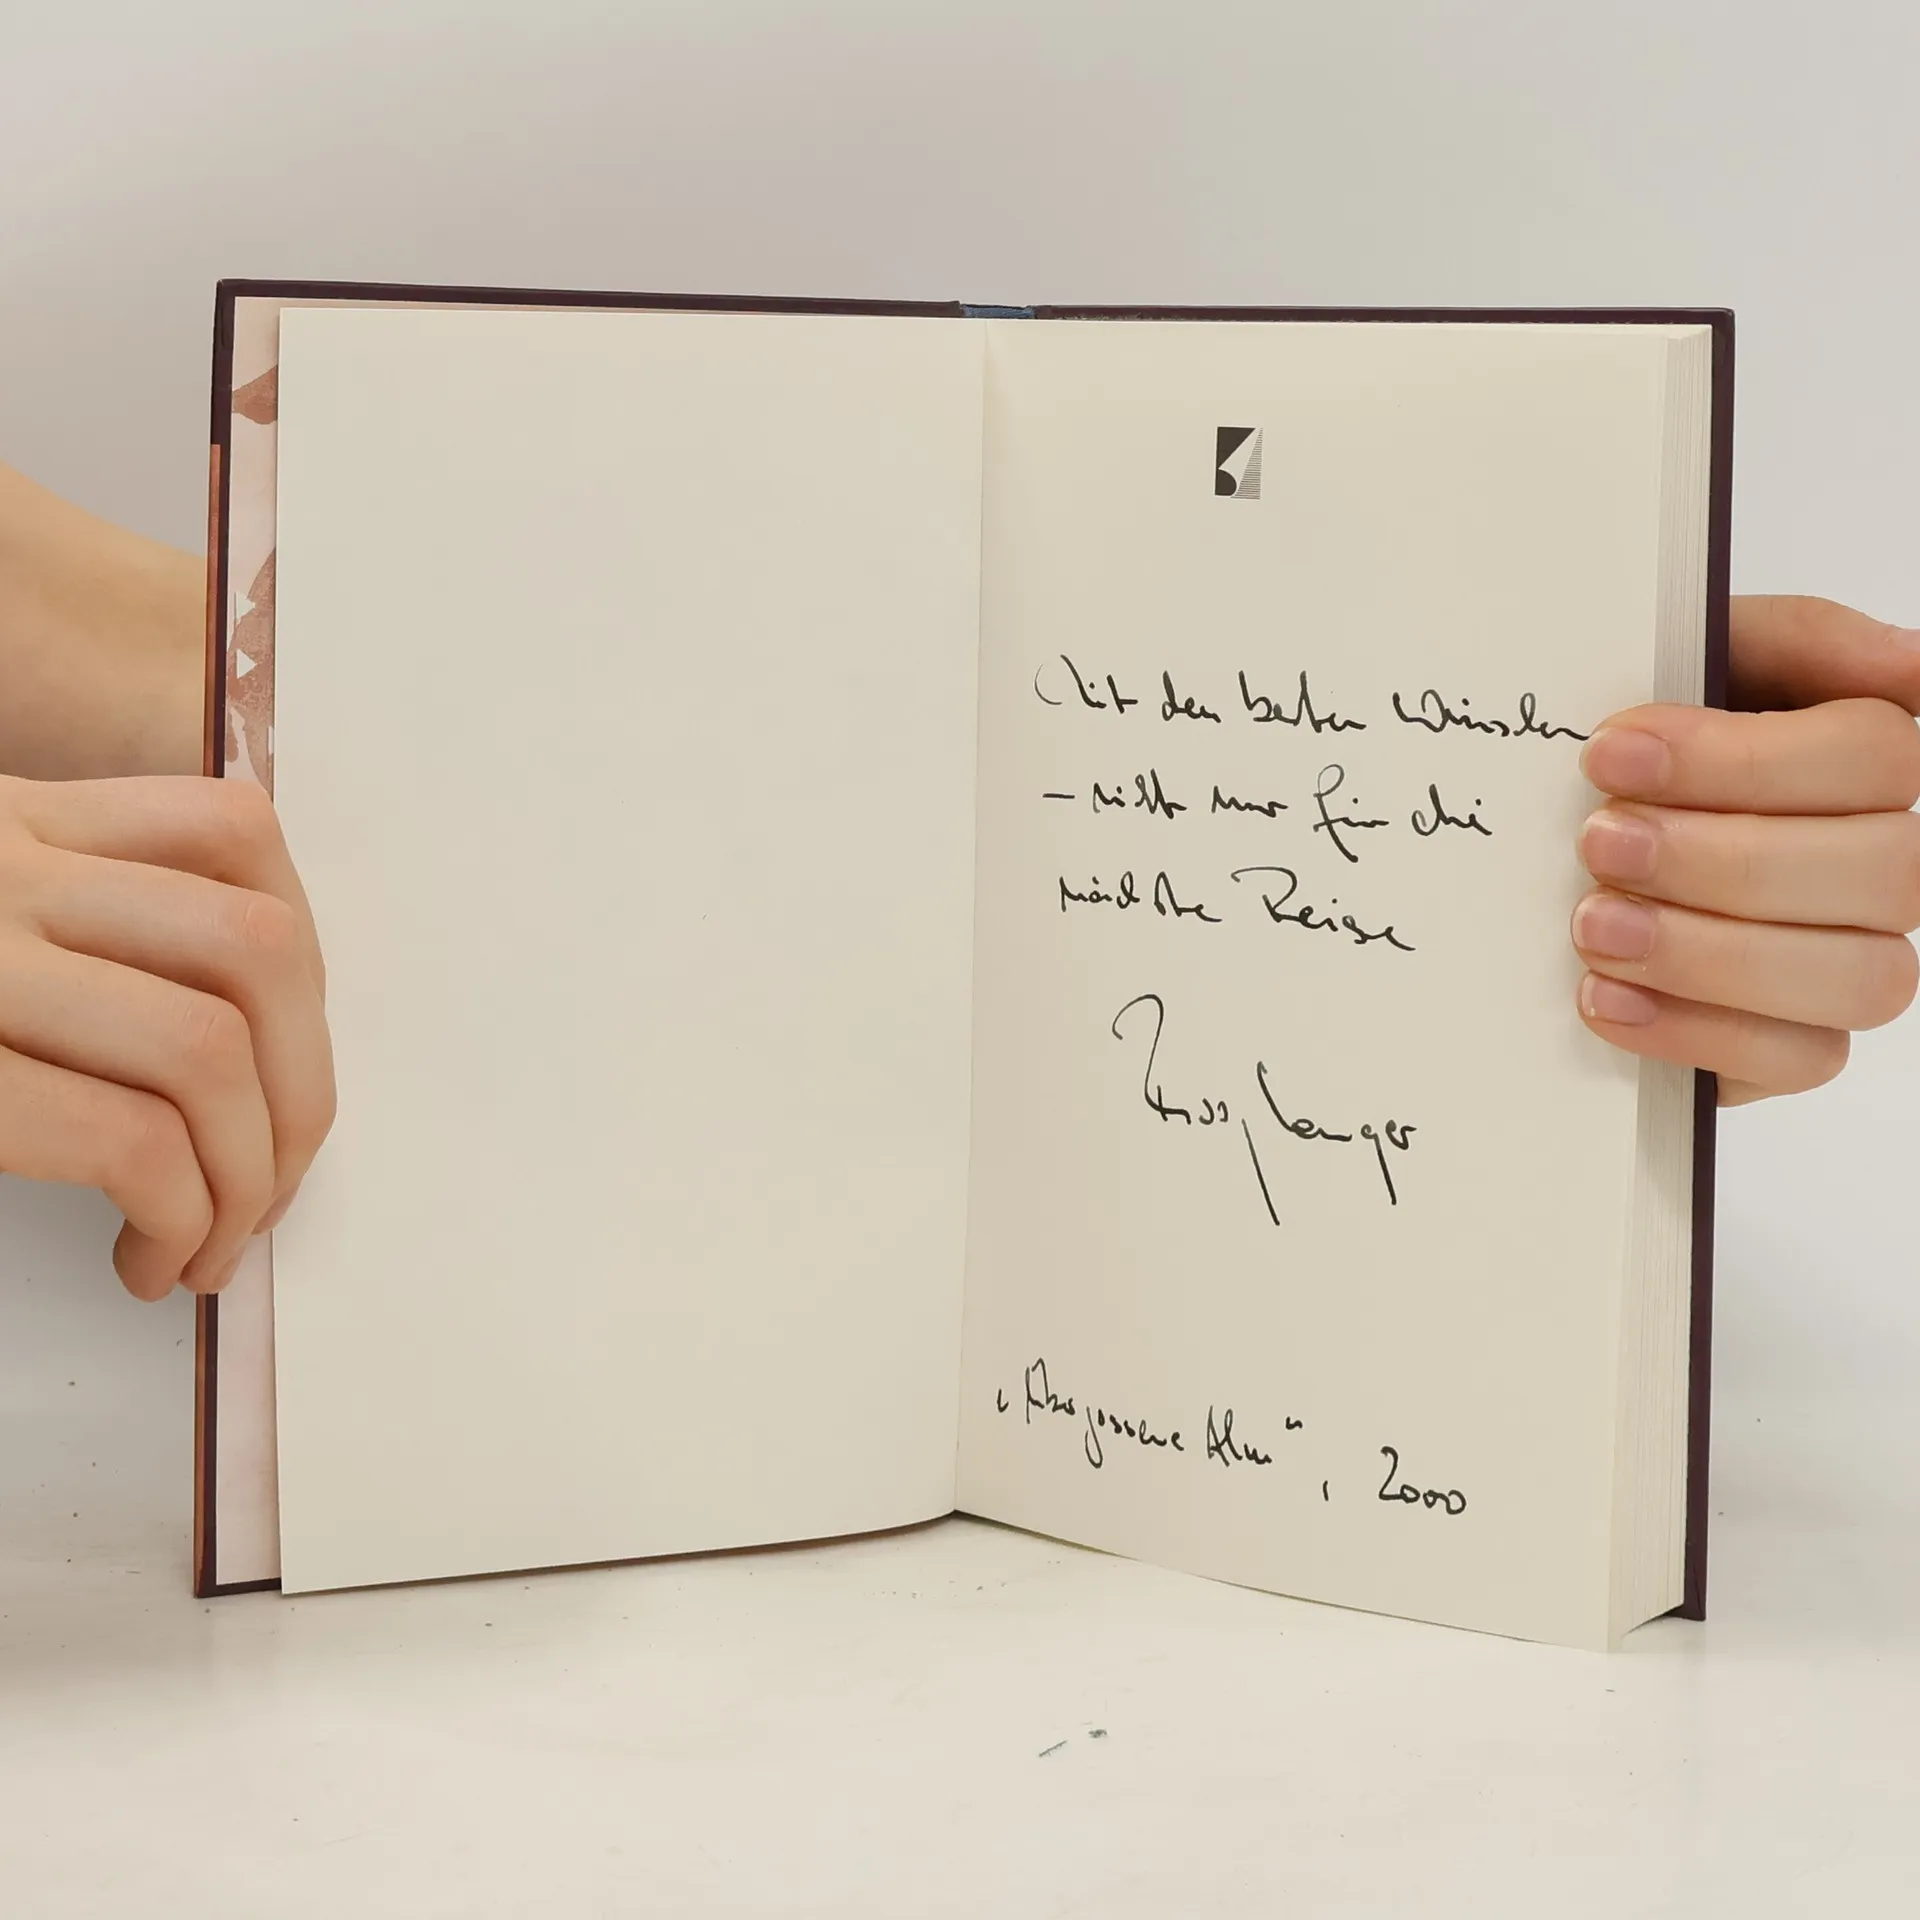 Mit den besten Wünschen
– nicht nur für die
nächste Reise
"Übergossene Alm", 2000